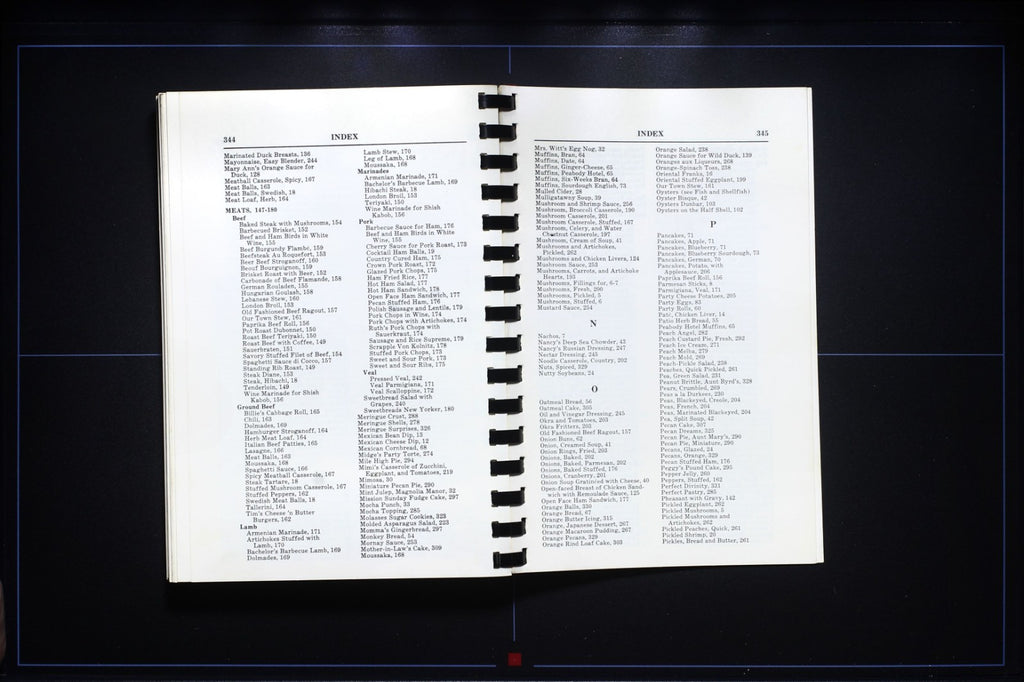 344
INDEX
Marinated Duck Breasts, 136
Mayonnaise, Easy Blender, 244
Mary Ann's Orange Sauce for
Duck, 128
Meatball Casserole, Spicy, 167
Meat Balls, 163
Meat Balls, Swedish, 18
Meat Loaf, Herb, 164
MEATS, 147-180
Beef
Baked Steak with Mushrooms, 154
Barbecued Brisket, 152
Beef and Ham Birds in White
Wine, 155
Beef Burgundy Flambé, 159
Beefsteak Au Roquefort, 153
Beer Beef Stroganoff, 160
Beouf Bourguignon, 159
Brisket Roast with Beer, 152
Carbonade of Beef Flamande, 158
German Rouladen, 155
Hungarian Goulash, 158
Lebanese Stew, 160
London Broil, 153
Old Fashioned Beef Ragout, 157
Our Town Stew, 161
Paprika Beef Roll, 156
Pot Roast Dubonnet, 150
Roast Beef Teriyaki, 150
Roast Beef with Coffee, 149
Sauerbraten, 151
Savory Stuffed Filet of Beef, 154
Spaghetti Sauce di Cocco, 157
Standing Rib Roast, 149
Steak Diane, 153
Steak, Hibachi, 18
Tenderloin, 149
Wine Marinade for Shish
Kabob, 156
Ground Beef
Billie's Cabbage Roll, 165
Chili, 163
Dolmades, 169
Hamburger Stroganoff, 164
Herb Meat Loaf, 164
Italian Beef Patties, 165
Lasagne, 166
Meat Balls, 163
Moussaka, 168
Spaghetti Sauce, 166
Spicy Meatball Casserole, 167
Steak Tartare, 18
Stuffed Mushroom Casserole, 167
Stuffed Peppers, 162
Swedish Meat Balls, 18
Tallerini, 164
Tim's Cheese 'n Butter
Burgers, 162
Lamb
Armenian Marinade, 171
Artichokes Stuffed with
Lamb, 170
Bachelor's Barbecue Lamb, 169
Dolmades, 169
Lamb Stew, 170
Leg of Lamb, 168
Moussaka, 168
Marinades
Armenian Marinade, 171
Bachelor's Barbecue Lamb, 169
Hibachi Steak, 18
London Broil, 153
Teriyaki, 150
Wine Marinade for Shish
Kabob, 156
Pork
Barbecue Sauce for Ham, 176
Beef and Ham Birds in White
Wine, 155
Cherry Sauce for Pork Roast, 173
Cocktail Ham Balls, 19
Country Cured Ham, 175
Crown Pork Roast, 172
Glazed Pork Chops, 175
Ham Fried Rice, 177
Hot Ham Salad, 177
Hot Ham Sandwich, 178
Open Face Ham Sandwich, 177
Pecan Stuffed Ham, 176
Polish Sausage and Lentils, 179
Pork Chops in Wine, 174
Pork Chops with Artichokes, 174
Ruth's Pork Chops with
Sauerkraut, 174
Sausage and Rice Supreme, 179
Scrapple Von Kolnitz, 178
Stuffed Pork Chops, 173
Sweet and Sour Pork, 173
Sweet and Sour Ribs, 175
Veal
Pressed Veal, 242
Veal Parmigiana, 171
Veal Scalloppine, 172
Sweetbread Salad with
Grapes, 240
Sweetbreads New Yorker, 180
Meringue Crust, 288
Meringue Shells, 278
Meringue Surprises, 326
Mexican Bean Dip, 13
Mexican Cheese Dip, 12
Mexican Cornbread, 68
Midge's Party Torte, 274
Mile High Pie, 294
Mimi's Casserole of Zucchini,
Eggplant, and Tomatoes, 219
Mimosa, 30
Miniature Pecan Pie, 290
Mint Julep, Magnolia Manor, 32
Mission Sunday Fudge Cake, 297
Mocha Punch, 33
Mocha Topping, 285
Molasses Sugar Cookies, 323
Molded Asparagus Salad, 223
Momma's Gingerbread, 297
Monkey Bread, 54
Mornay Sauce, 253
Mother-in-Law's Cake, 309
Moussaka, 168
INDEX
345
Mrs. Witt's Egg Nog, 32
Muffins, Bran, 64
Muffins, Date, 64
Muffins, Ginger-Cheese, 65
Muffins, Peabody Hotel, 65
Muffins, Six-Weeks Bran, 64
Muffins, Sourdough English, 73
Mulled Cider, 28
Mulligatawny Soup, 39
Mushroom and Shrimp Sauce, 256
Mushroom, Broccoli Casserole, 190
Mushroom Casserole, 201
Mushroom Casserole, Stuffed, 167
Mushroom, Celery, and Water
Chestnut Casserole, 197
Mushroom, Cream of Soup, 41
Mushrooms and Artichokes,
Pickled, 262
Mushrooms and Chicken Livers, 124
Mushroom Sauce, 253
Mushrooms, Carrots, and Artichoke
Hearts, 193
Mushrooms, Fillings for, 6-7
Mushrooms, Fresh, 200
Mushrooms, Pickled, 5
Mushrooms, Stuffed, 6
Mustard Sauce, 254
N
Nachos, 7
Nancy's Deep Sea Chowder, 43
Nancy's Russian Dressing, 247
Nectar Dressing, 245
Noodle Casserole, Country, 202
Nuts, Spiced, 329
Nutty Soybeans, 24
O
Oatmeal Bread, 56
Oatmeal Cake, 305
Oil and Vinegar Dressing, 245
Okra and Tomatoes, 203
Okra Fritters, 203
Old Fashioned Beef Ragout, 157
Onion Buns, 62
Onion, Creamed Soup, 41
Onion Rings, Fried, 203
Onions, Baked, 202
Onions, Baked, Parmesan, 202
Onions, Baked Stuffed, 176
Onions, Cranberry, 201
Onion Soup Gratinéed with Cheese, 40
Open-faced Breast of Chicken Sand-
wich with Remoulade Sauce, 125
Open Face Ham Sandwich, 177
Orange Balls, 330
Orange Bread, 67
Orange Butter Icing, 315
Orange, Japanese Dessert, 267
Orange Macaroon Pudding, 267
Orange Pecans, 329
Orange Rind Loaf Cake, 303
Orange Salad, 238
Orange Sauce for Wild Duck, 139
Oranges aux Liqueurs, 268
Orange-Spinach Toss, 238
Oriental Franks, 16
Oriental Stuffed Eggplant, 199
Our Town Stew, 161
Oysters (see Fish and Shellfish)
Oyster Bisque, 42
Oysters Dunbar, 103
Oysters on the Half Shell, 102
P
Pancakes, 71
Pancakes, Apple, 71
Pancakes, Blueberry, 71
Pancakes, Blueberry Sourdough, 73
Pancakes, German, 70
Pancakes, Potato, with
Applesauce, 206
Paprika Beef Roll, 156
Parmesan Sticks, 8
Parmigiana, Veal, 171
Party Cheese Potatoes, 205
Party Eggs, 83
Party Rolls, 60
Paté, Chicken Liver, 14
Patio Herb Bread, 55
Peabody Hotel Muffins, 65
Peach Angel, 282
Peach Custard Pie, Fresh, 292
Peach Ice Cream, 271
Peach Melba, 279
Peach Mold, 269
Peach-Pickle Salad, 238
Peaches, Quick Pickled, 261
Pea, Green Salad, 231
Peanut Brittle, Aunt Byrd's, 328
Pears, Crumbled, 269
Peas a la Durkees, 230
Peas, Blackeyed, Creole, 204
Peas, French, 204
Peas, Marinated Blackeyed, 204
Pea, Split Soup, 42
Pecan Cake, 307
Pecan Dreams, 325
Pecan Pie, Aunt Mary's, 290
Pecan Pie, Miniature, 290
Pecans, Glazed, 24
Pecans, Orange, 329
Pecan Stuffed Ham, 176
Peggy's Pound Cake, 295
Pepper Jelly, 260
Peppers, Stuffed, 162
Perfect Divinity, 331
Perfect Pastry, 285
Pheasant with Gravy, 142
Pickled Eggplant, 262
Pickled Mushrooms, 5
Pickled Mushrooms and
Artichokes, 262
Pickled Peaches, Quick, 261
Pickled Shrimp, 20
Pickles, Bread and Butter, 261